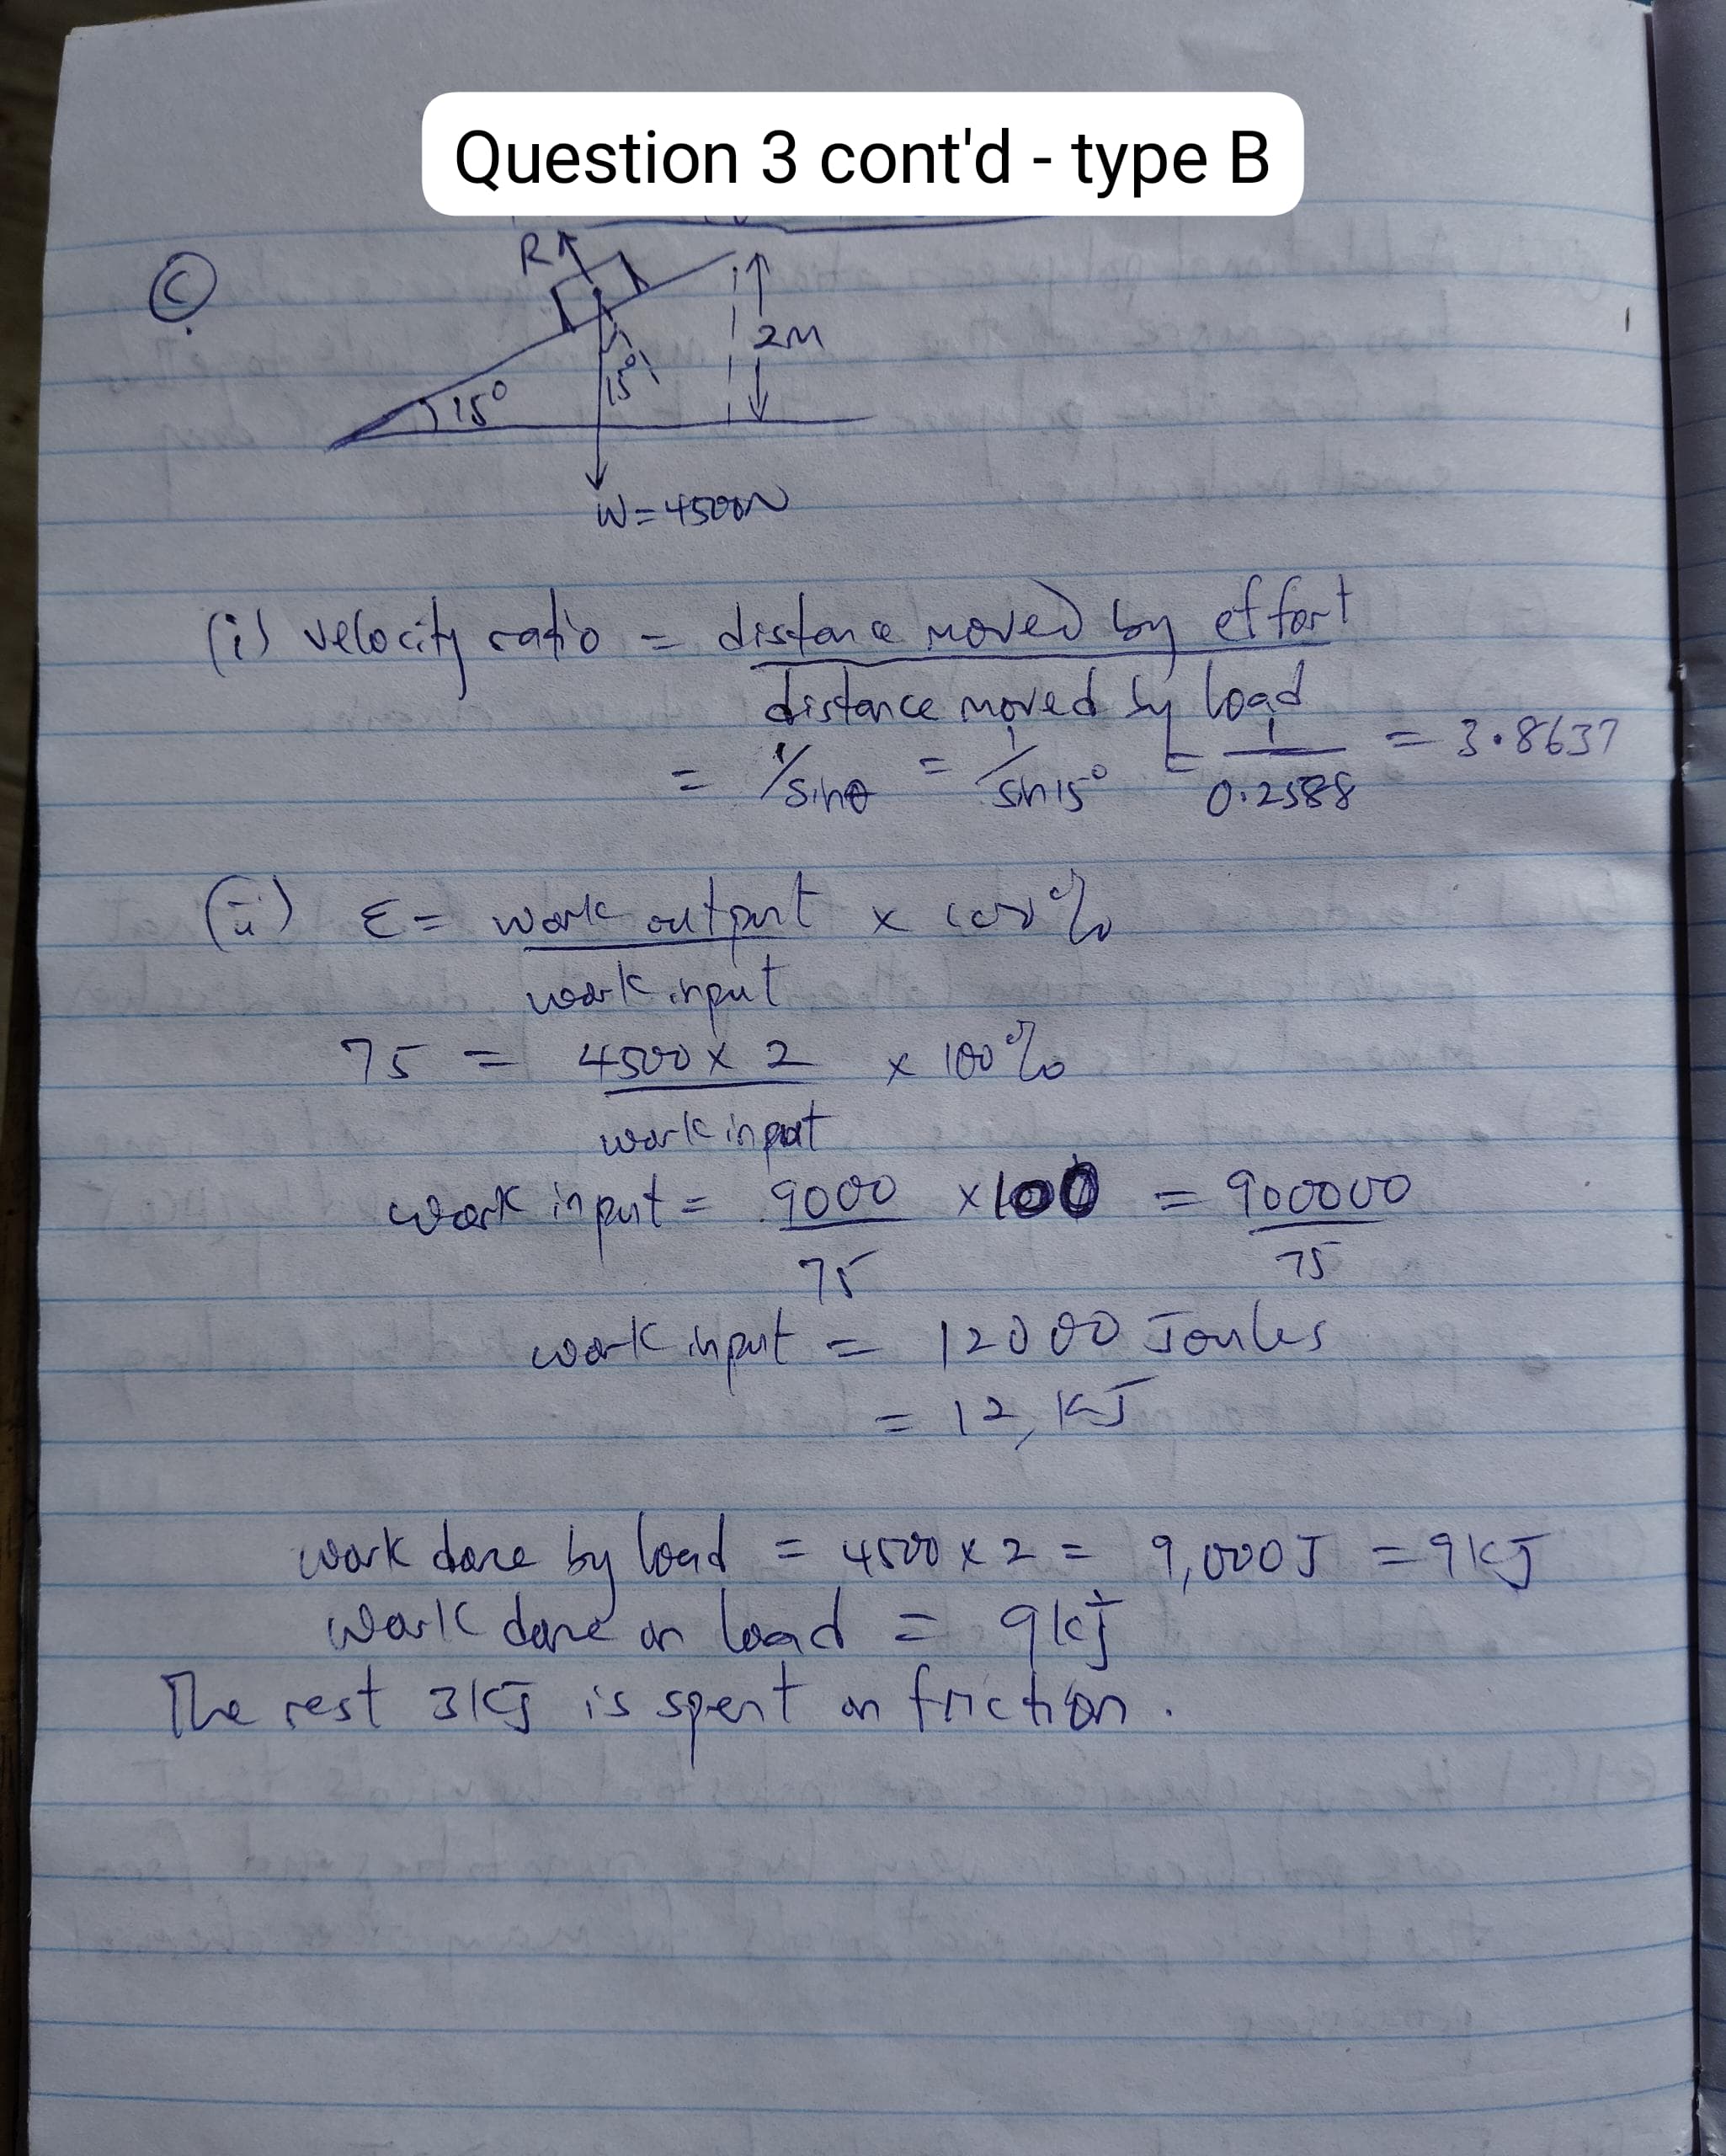 Question 3 cont'd - type B
(C)
R
2M
15°
15°
W = 4500N
(i) velocity ratio = distance moved by effort
distance moved by load
= 1/sinθ = 1/sin15° = 1/0.2588 = 3.8637
(ii) ε = work output × 100%
work input
75 = 4500 × 2 × 100%
work input
work input = 9000 × 100 = 900000
75 75
work input = 12000 Joules
= 12, KJ
work done by load = 4500 × 2 = 9,000J = 9KJ
work done on load = 9KJ
The rest 3KJ is spent on friction.